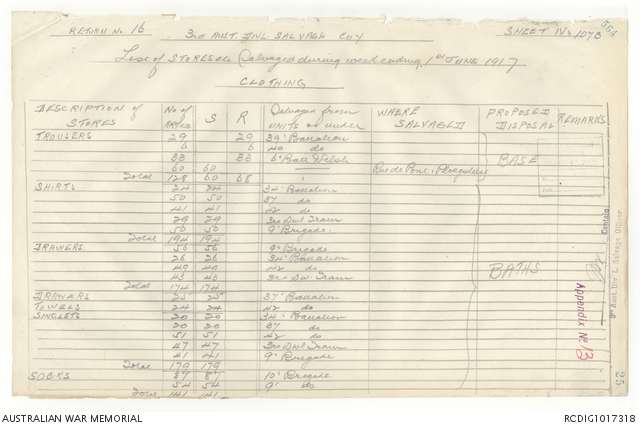 RETURN No 16 3rd AUST. DIVL SALVAGE COY SHEET No 107B
List of STORES etc Salvaged during week ending 1st JUNE 1917
CLOTHING
DESCRIPTION of STORES No of ARTICLES S R Salvaged from UNITS as under WHERE SALVAGED PROPOSED DISPOSAL REMARKS
TROUSERS 29 29 39' Battalion
6 6 40 do
33 33 6' Batt Welsh BASE
60 60 Rue de Pont,
Total 128 60 68
SHIRTS 24 24 34' Battalion
50 50 37 do
41 41 42 do
29 29 3rd Divl Train
50 50 9' Brigade
Total 194 194
DRAWERS 56 56 9' Brigade
26 26 34' Battalion
49 49 42 do BATHS
43 43 3rd Divl Train
Total 174 174
DRAWERS 25 25 37' Battalion
TOWELS 24 24 42 do
SINGLETS 20 20 34' Battalion
20 20 37 do
51 51 42 do
47 47 3rd Divl Train
41 41 9' Brigade
Total 179 179
SOCKS 87 87 10' Brigade
54 54 9' do
Total 141 141
Captain
3rd Aust. Div'l. Salvage Officer
Appendix No 13
25
AUSTRALIAN WAR MEMORIAL RCDIG1017318